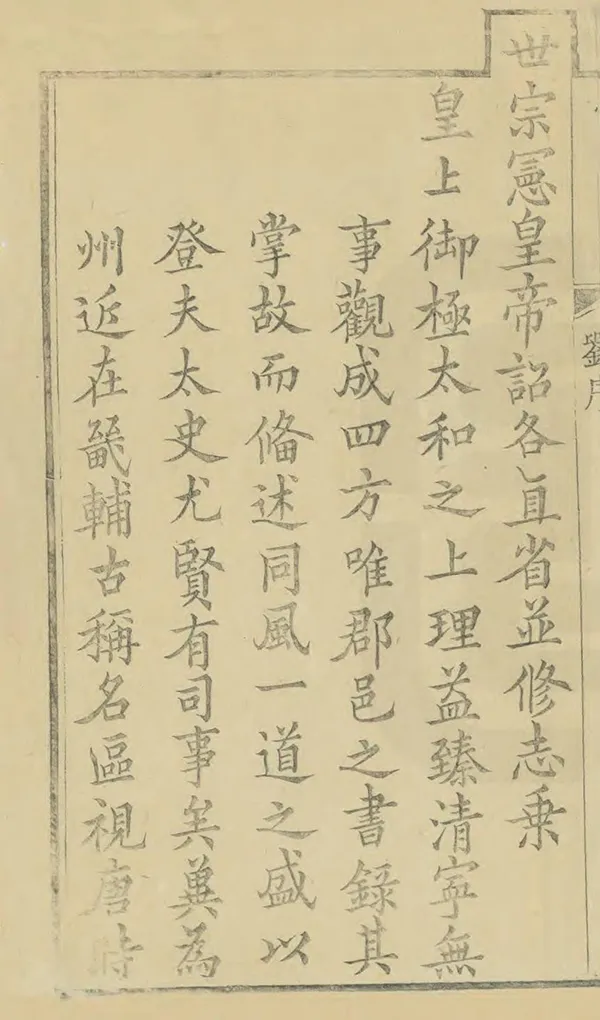 世宗憲皇帝詔各直省並修志乗
皇上御極太和之上理益臻清寧無
事觀成四方唯郡邑之書録其
掌故而偹述同風一道之盛以
登夫太史尤賢有司事矣冀為
州近在畿輔古稱名區視唐時
劉序